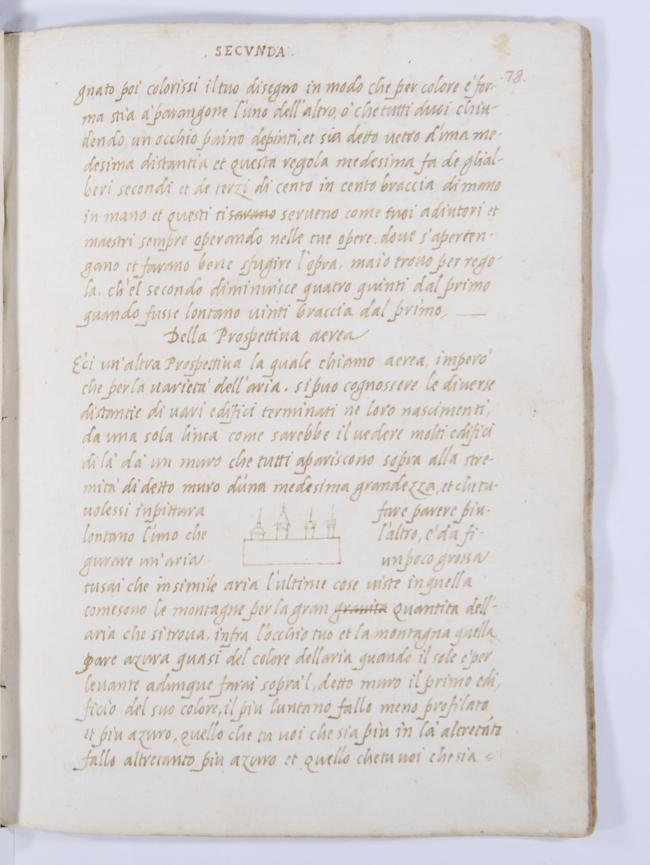 . SECVNDA .
78.
gnato poi colorissi il tuo disegno in modo che per colore e for-
ma stia à parangone l'uno dell'altro, o' che tutti duoi chiu-
dendo un occhio paino depinti, et sia detto uetro d'una me-
desima distantia et questa regola medesima fa de glial-
beri secondi et de terzi di cento in cento braccia di mano
in mano et questi ti sarano serueno come tuoi adiutori et
maestri sempre operando nelle tue opere. doue s'aperten-
gano et farano bene sfugire l'opra, ma io trouo per rego-
la. ch'el secondo diminuisce quatro quinti dal primo
quando fusse lontano uinti braccia dal primo
Della Prospettiua aerea
Ecci un'altra Prospettiua la quale chiamo aerea, impero'
che per la uarieta' dell'aria. si puo cognoscere le diuerse
distantie di uari edifici terminati ne loro nascimenti,
da una sola linea come sarebbe il uedere molti edifici
di la' da' un muro che tutti apariscono sopra alla stre-
mita' di detto muro d'una medesima grandezza, et che tu
uolessi in pittura fare parere piu-
lontano l'uno che l'altro, e' da fi-
gurare un'aria un poco grossa
tu sai che in simile aria l'ultime cose uiste in quella
come sono le montagne per la gran grauita quantita dell'-
aria che si troua, infra l'occhio tuo et la montagna quella
pare azura quasi del colore dell aria quando il sole e' per
leuante adunque farai sopra'l, detto muro il primo edi,
ficio del suo colore, il piu luntano fallo meno profilato
et piu azuro, quello che tu uoi che sia piu in la' altretáto
fallo altretanto piu azuro et quello che tu uoi che sia